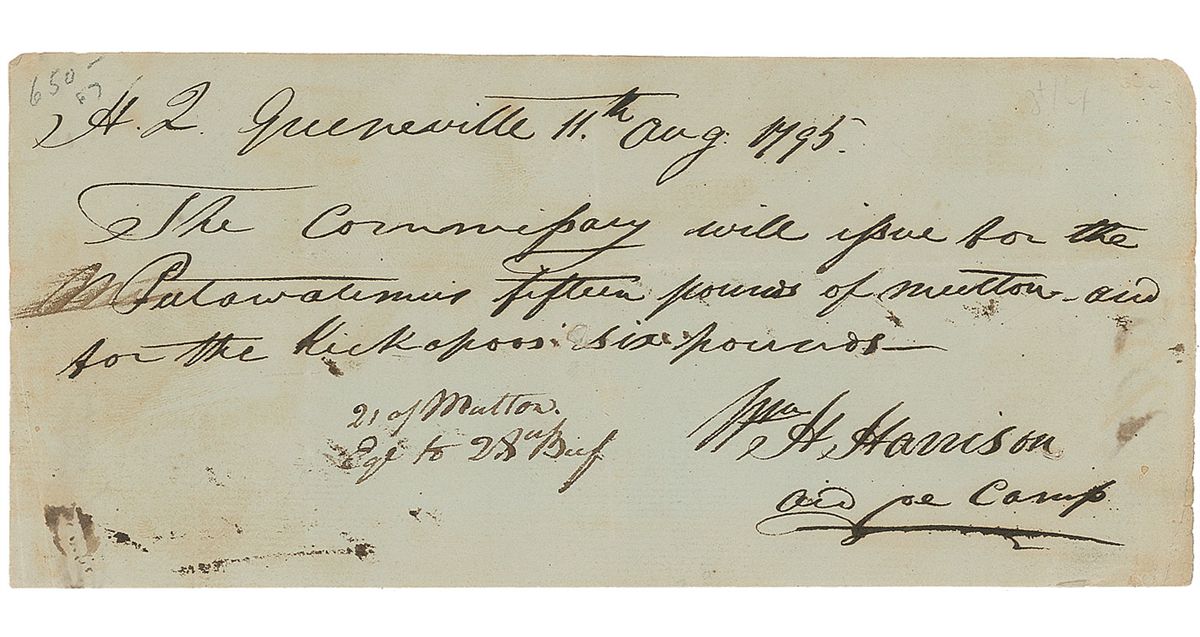 650
67
H. Q. Greeneville 11.th Aug. 1795.
The Commissary will issue for the
Putawatimus fifteen pounds of mutton and
for the Kickapoos six pounds
21 of Mutton.
Eql to 28 lb Beef
Wm H Harrison
aid de Camp